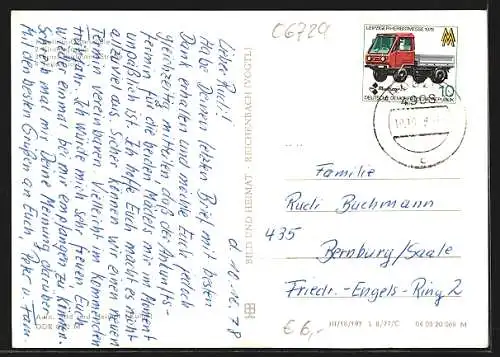 C6729
d. 10.12.78
Lieber Rudi!
Habe Deinen letzten Brief mit besten
Dank erhalten und möchte Euch jedoch
gleichzeitig mitteilen daß der Ankunfts-
termin für die beiden Mädels mir im Moment
unpäßlich ist. Ich hoffe Euch macht es nicht
allzuviel aus. Sicher können wir einen neuen
Termin vereinbaren. Vielleicht im kommenden
Frühjahr. Ich würde mich sehr freuen Euch
wieder einmal bei mir empfangen zu können.
Schreib mal mir Deine Meinung darüber.
Mit den besten Grüßen an Euch, Peter u. Fam.
BILD UND HEIMAT REICHENBACH (VOGTL)
LEIPZIGER HERBSTMESSE 1978
MM
10
DEUTSCHE DEMOKRATISCHE REPUBLIK
4908
c
Familie
Rudi Buchmann
435 Bernburg/Saale
Friedr.-Engels-Ring 2
€ 6,-
III/18/197 S 8/77/C 06 08 20 069 M